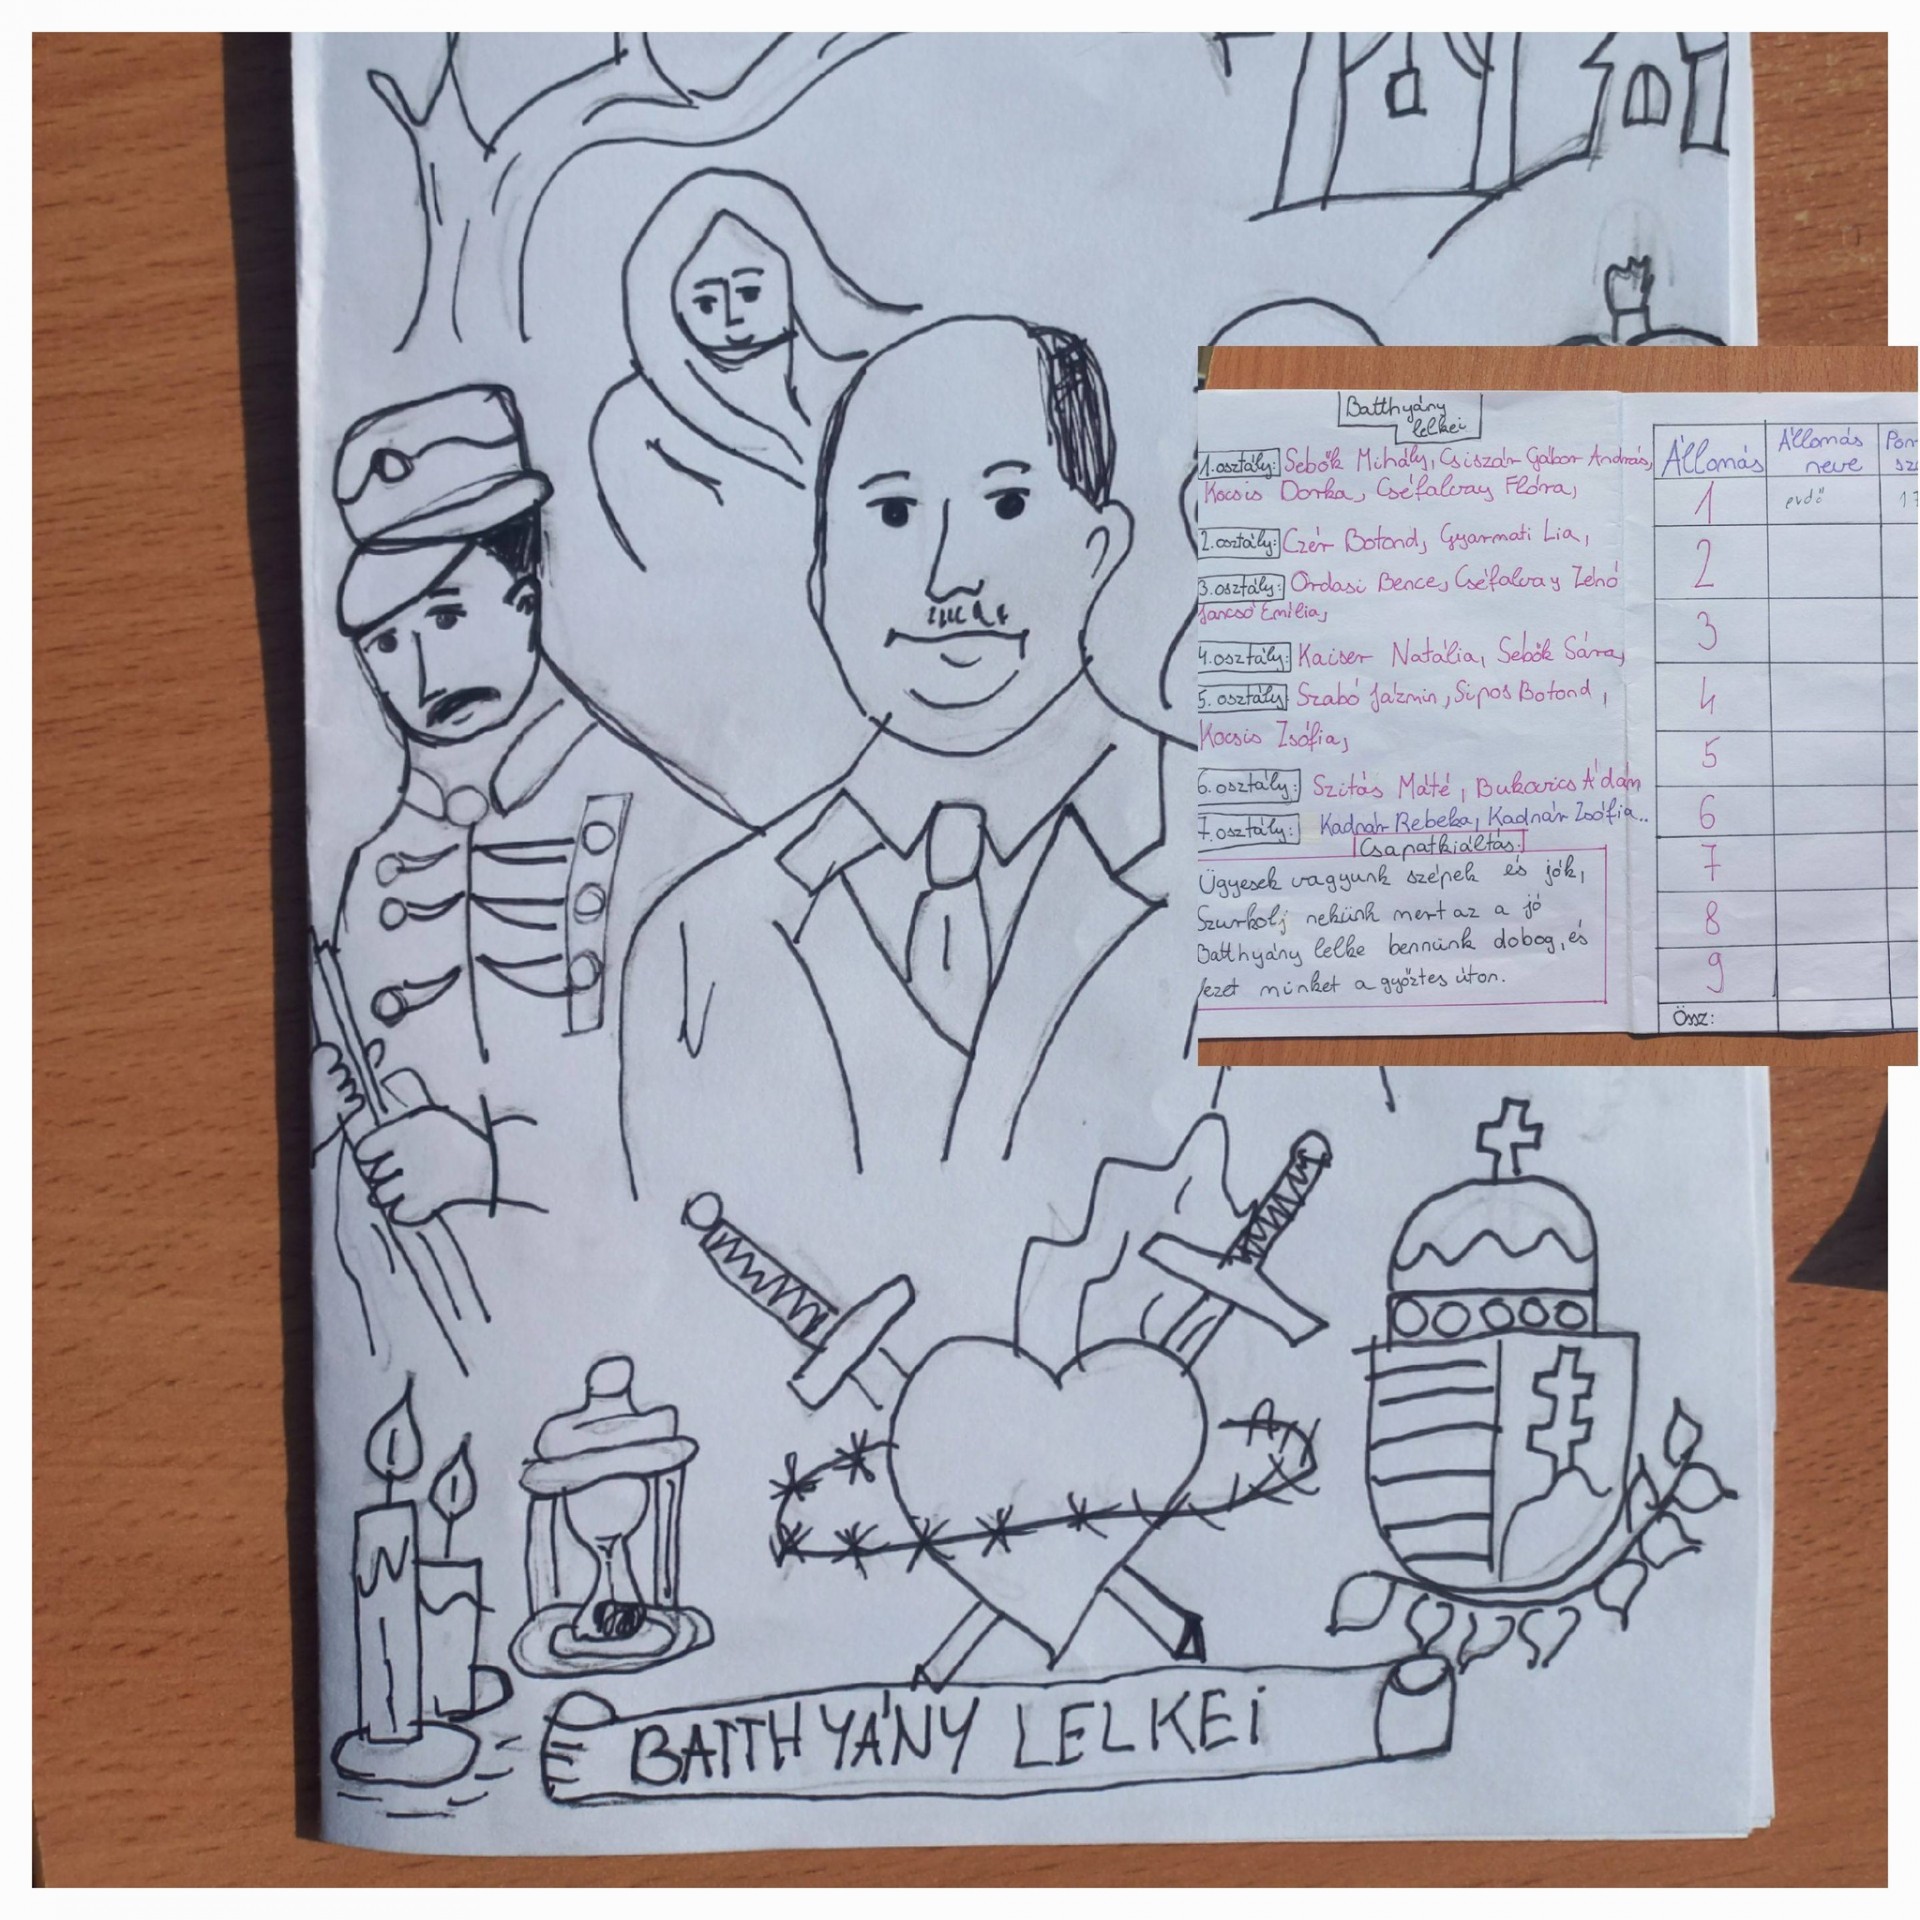 Batthyány
lelkei
1. osztály: Sebők Mihály, Csiszár Gábor András,
Kocsis Dorka, Cséfalvay Flóra,
2. osztály: Czér Botond, Gyarmati Lia,
3. osztály: Ordasi Bence, Cséfalvay Zénó
Jancsó Emília,
4. osztály: Kaiser Natália, Sebők Sára,
5. osztály: Szabó Jázmin, Sipos Botond,
Kocsis Zsófia,
6. osztály: Szitás Máté, Bukovics Ádám
7. osztály: Kadnár Rebeka, Kadnár Zsófia..
Csapatkiáltás:
Ügyesek vagyunk szépek és jók,
Szurkolj nekünk mert az a jó
Batthyány lelke bennünk dobog, és
vezet minket a győztes úton.
Állomás Állomás neve Pon sz
1 erdő 17
2
3
4
5
6
7
8
9
Össz:
BATTHYÁNY LELKEi